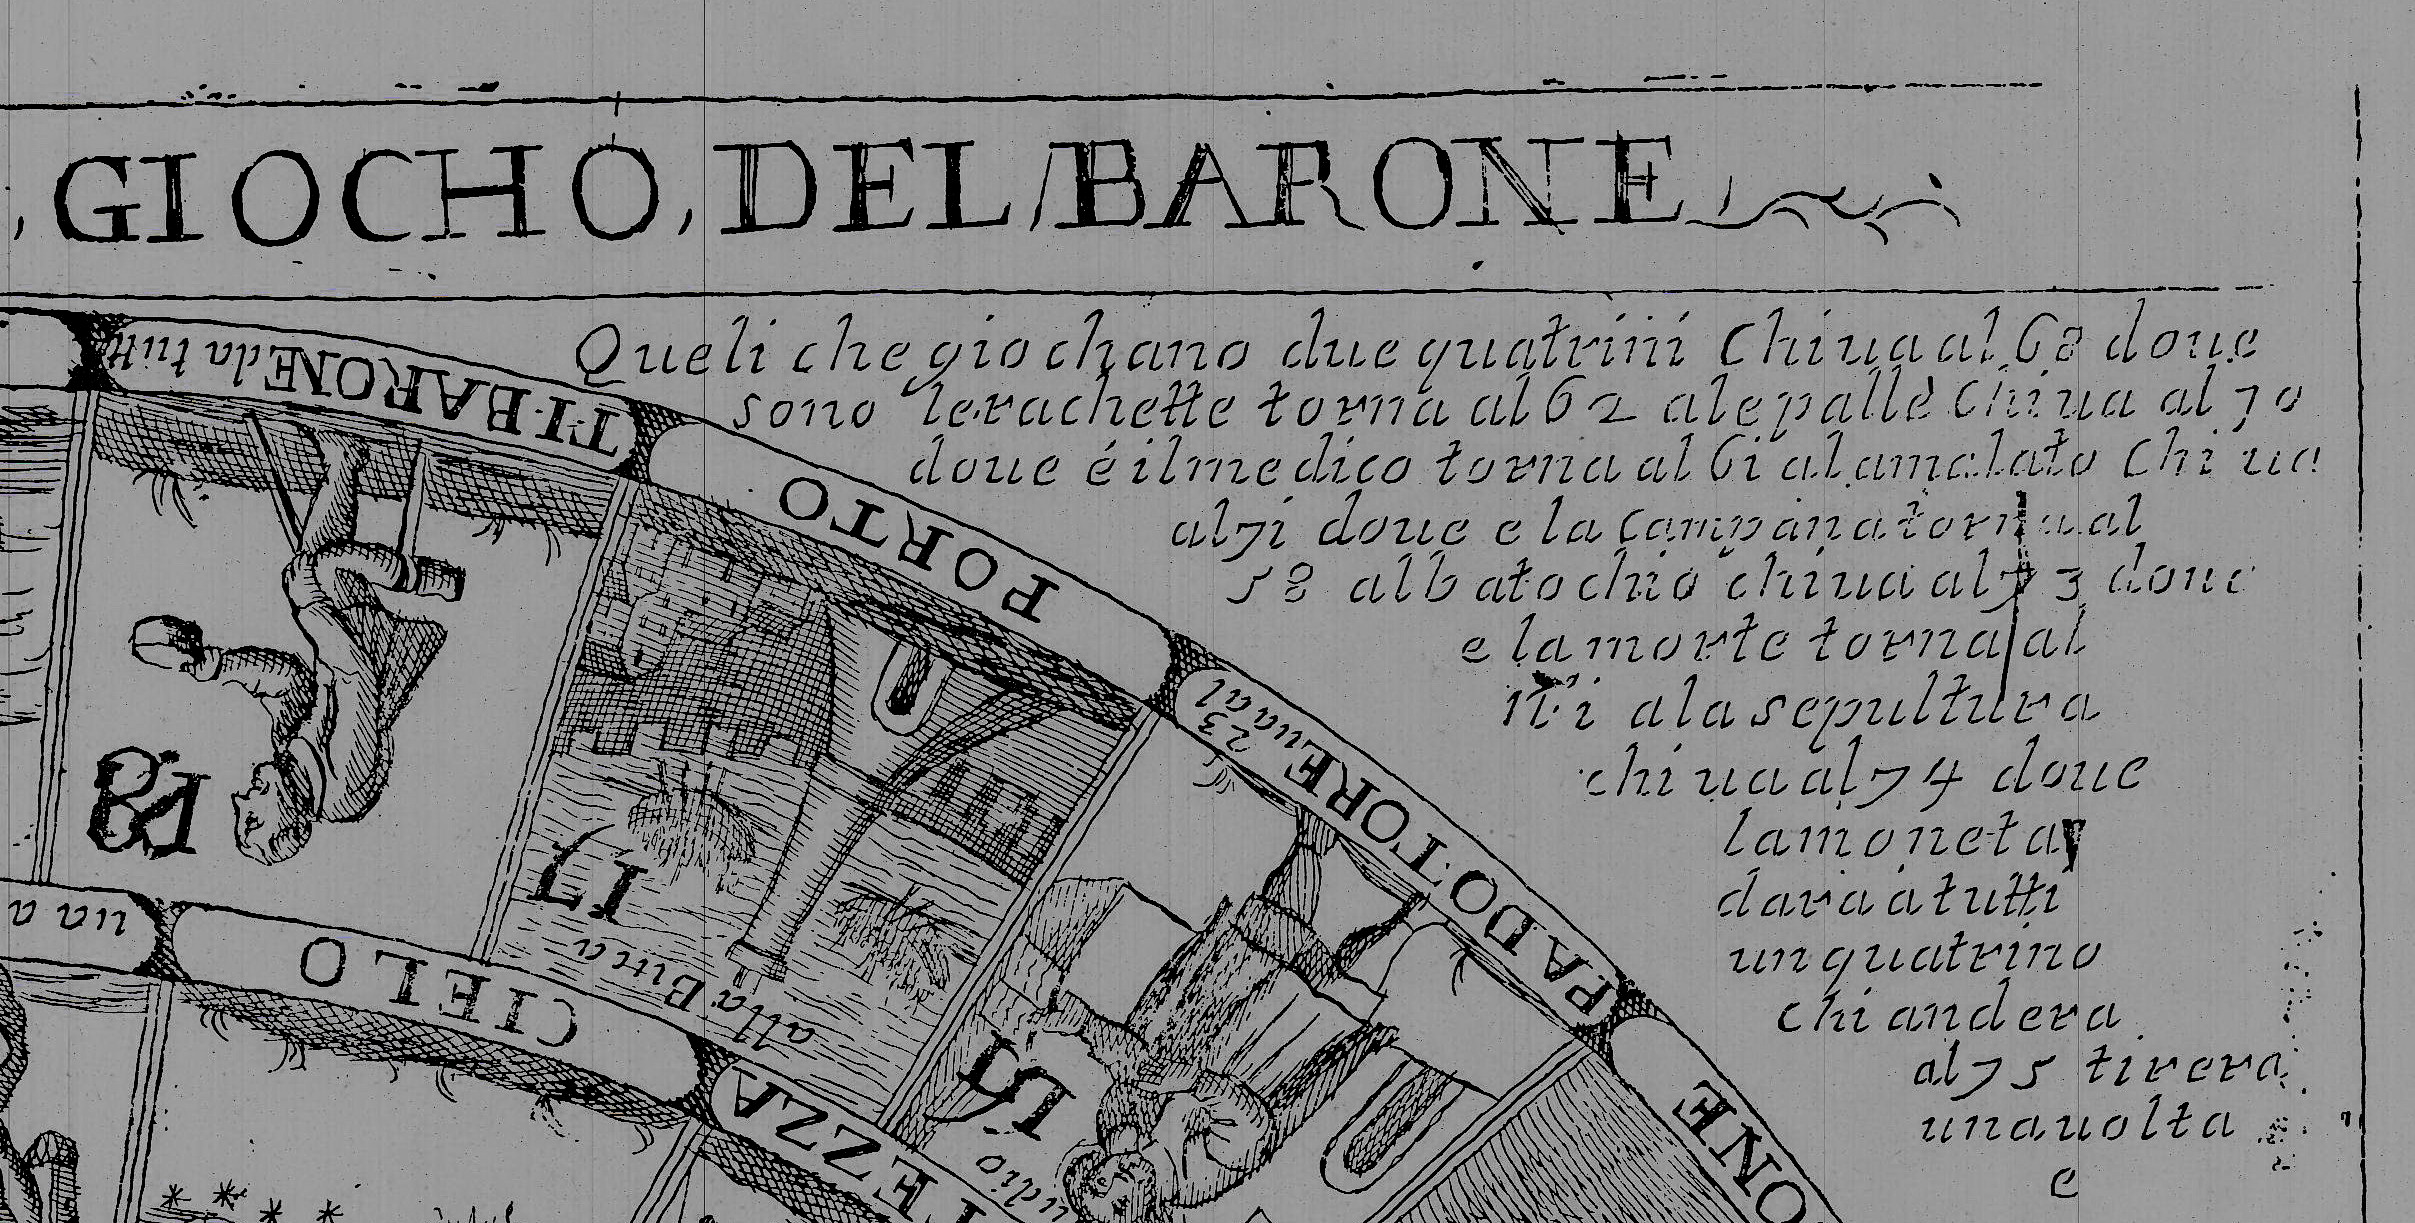 , GIOCHO, DEL BARONE
Queli che giochano due quatrini Chi ua al 68 doue
sono le rachette torna al 62 ale palle Chi ua al 70
doue é il medico torna al 61 al amalato Chi ua
al 71 doue e la Campana torna al
58 al batochio chi ua al 73 doue
e la morte torna al
ala sepultura
chi ua al 74 doue
la moneta
dara a tutti
un quatrino
chi andera
al 75 tirera
una uolta
e
TI·BARONE da tutti
PORTO
PADOTORE ua al
23
ONE
18
17
alla Buca
15
ua a
CIELO
EZZA